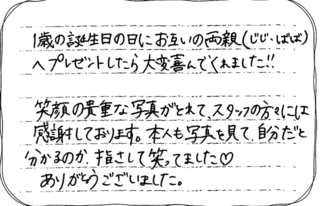 1歳の誕生日の日にお互いの両親(じじ・ばば)
へプレゼントしたら大変喜んでくれました!!
笑顔の貴重な写真がとれて、スタッフの方々には
感謝しております。本人も写真を見て、自分だと
分かるのか、指さして笑ってました♡
ありがとうございました。